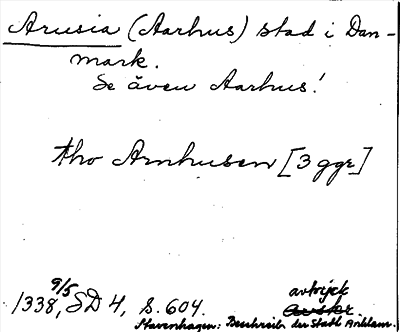 Arusia (Aarhus) stad i Dan-
mark.
Se även Aarhus!
tho Arnhusen [3 ggr]
9/5
1338, SD 4, S. 604.
avtryck
Stavenhagen: Beschreib. der Stadt Anklam.